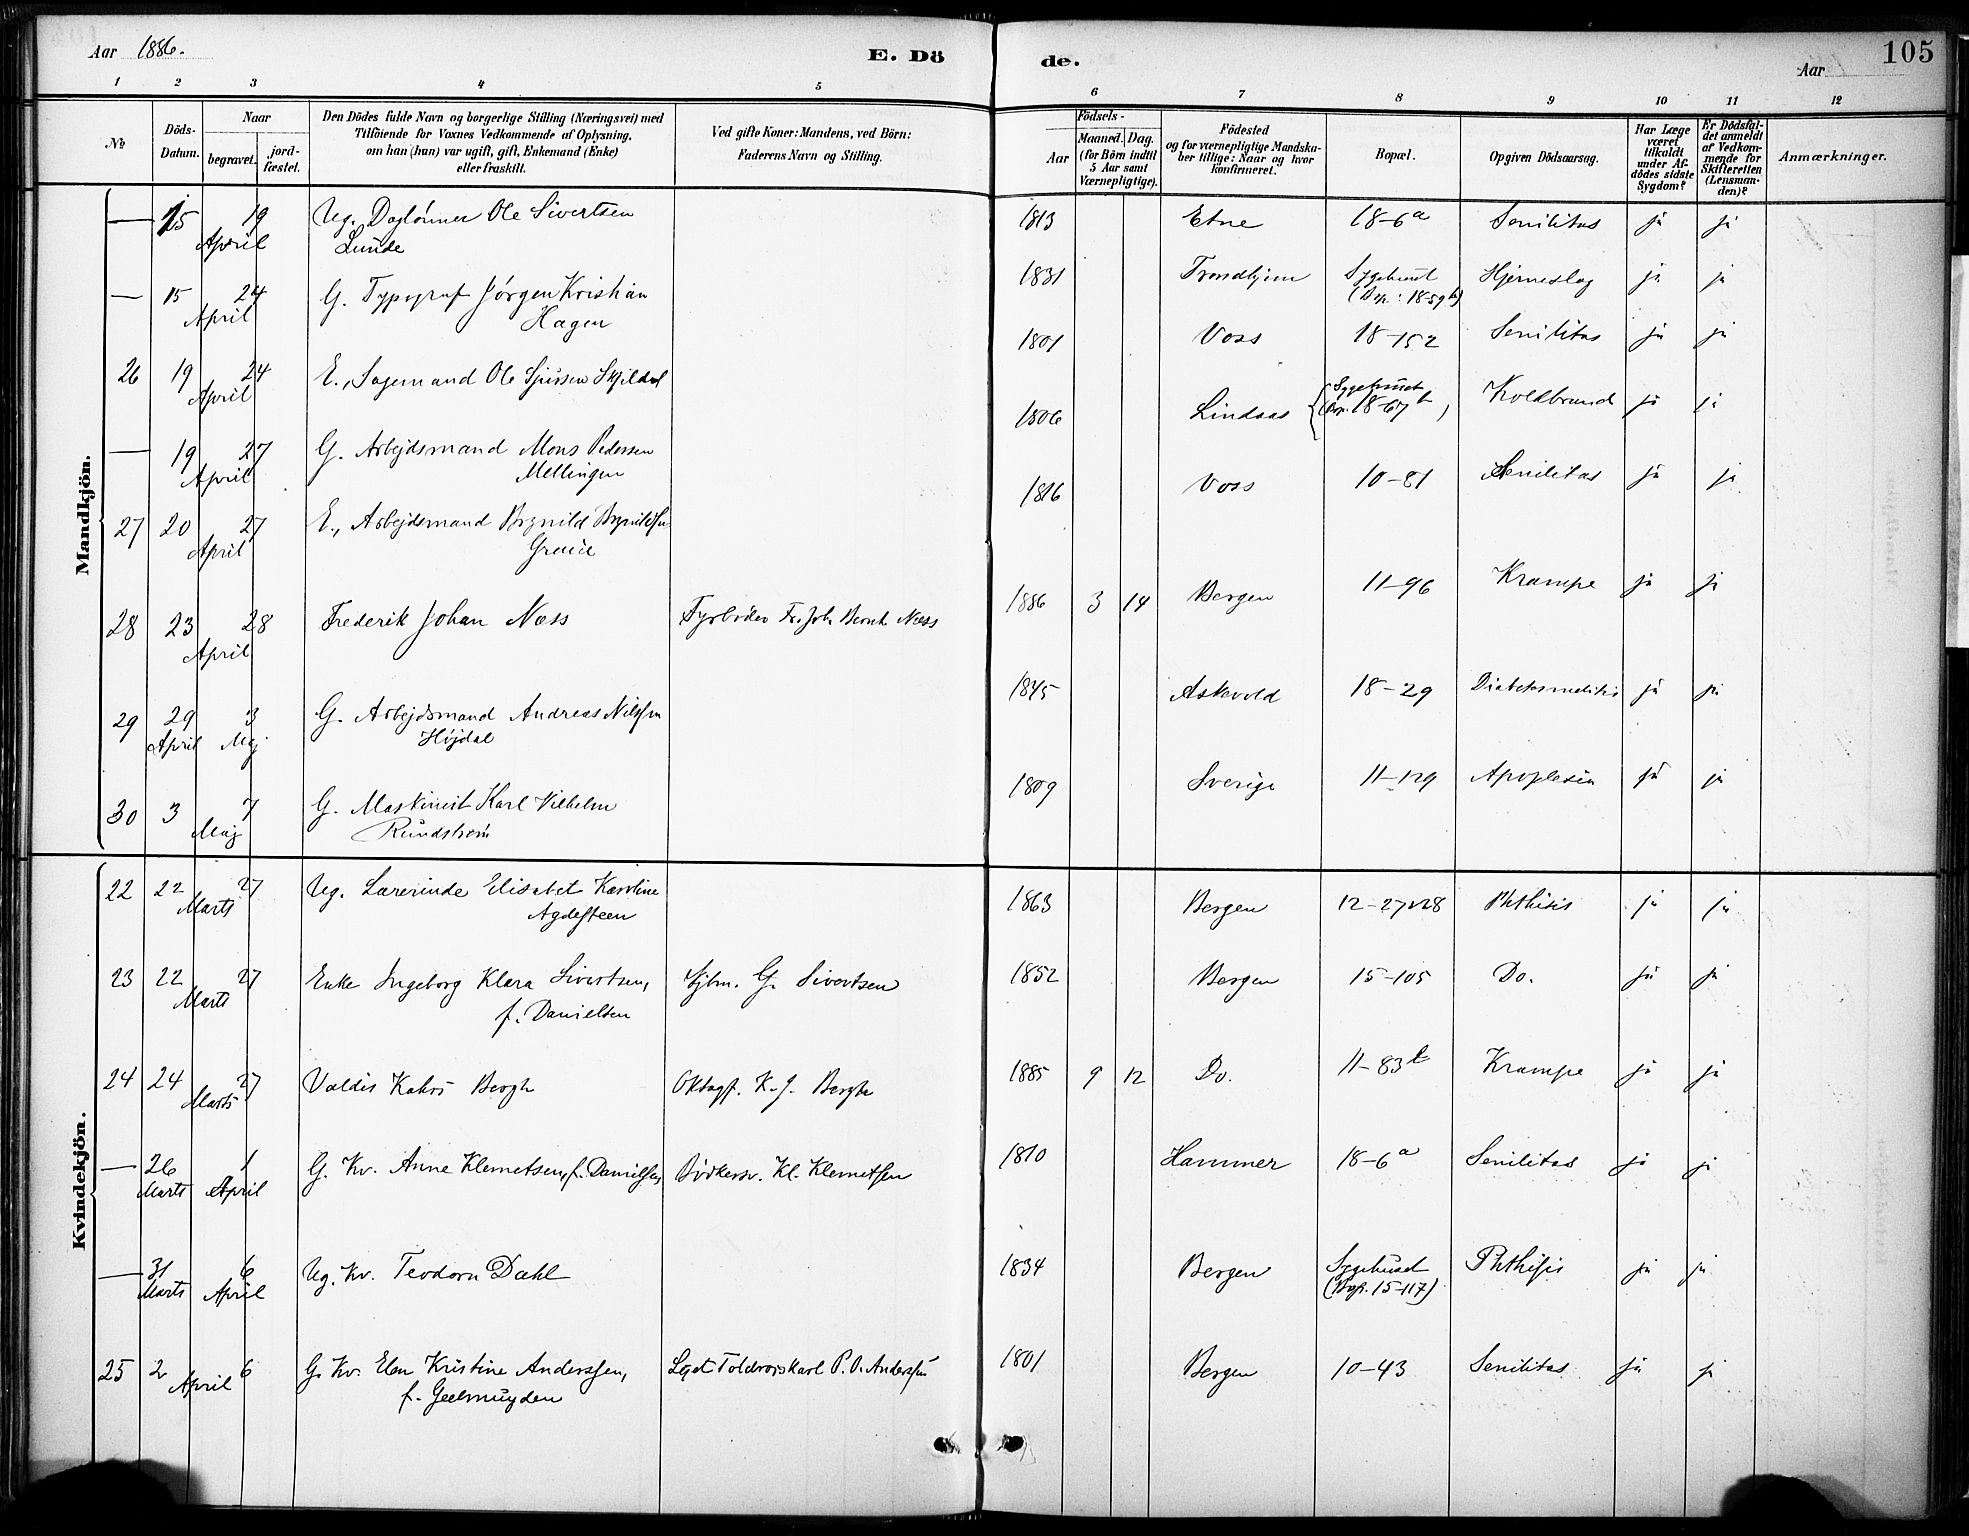 Aar 1886.
E. Dö
de.
Aar
105
1 2 3 4 5 6 7 8 9 10 11 12
No
Döds-Datum.
Naar
begravet.
jord-fæstet.
Den Dödes fulde Navn og borgerlige Stilling (Næringsvei) med
Tilföiende for Voxnes Vedkommende af Oplysning,
om han (hun) var ugift, gift, Enkemand (Enke)
eller fraskilt.
Ved gifte Koner: Mandens, ved Börn:
Faderens Navn og Stilling.
Födsels-
Aar
Maaned. Dag.
(for Börn indtil
5 Aar samt
Værnepligtige).
Födested
og for værnepligtige Mandska-
ber tillige: Naar og hvor
konfirmeret.
Bopæl.
Opgiven Dödsaarsag.
Har Læge
været
tilkaldt
under Af-
dödes sidste
Sygdom?
Er Dödsfal-
det anmeldt
af Vedkom-
mende for
Skifteretten
(Lensman-
den)?
Anmærkninger.
Mandkjön.
— 15 19 April Ug. Daglønner Ole Sivertsen Lunde 1813 Etne 18-6a Senilitas ja ja
— 15 24 April G. Typograf Jørgen Kristian Hagen 1831 Trondhjem Sygehuset (Bop: 18-59b) Hjerneslag ja ja
26 19 24 April E., Sagemand Ole Sjursen Skjildal 1801 Voss 18-152 Senilitas ja ja
— 19 27 April G. Arbejdsmand Mons Pedersen Mellingen 1806 Lindaas Sygehuset (Bop. 18-67b) Koldbrand ja ja
27 20 27 April E., Arbejdsmand Brynild Brynildsen Graue 1816 Voss 10-81 Senilitas ja ja
28 23 28 April Frederik Johan Næss Fyrbøder Fr. Joh. Bernt Næss 1886 3 14 Bergen 11-96 Krampe ja ja
29 29 April 3 Maj G. Arbejdsmand Andreas Nilssen Højdal 1845 Askvold 18-29 Diabetes mellitis ja ja
30 3 7 Maj G. Maskinist Karl Vilhelm Rundstrøm 1809 Sverige 11-129 Apoplexia ja ja
Kvindekjön.
22 22 27 Marts Ug. Lærerinde Elisabet Karoline Agdesteen 1863 Bergen 12-27&28 Phthisis ja ja
23 22 27 Marts Enke Ingeborg Klara Sivertsen, f. Danielsen Sjbm. G. Sivertsen 1852 Bergen 15-105 Do. ja ja
24 24 27 Marts Valdis Kahrs Bergh K. J. Bergh 1885 9 12 Do. 11-83b Krampe ja ja
— 26 Marts 1 April G. Kv. Anne Klemetsen, f. Danielsen, Bødkersv. Kl. Klemetsen 1810 Hammer 18-6a Senilitas ja ja
— 31 Marts 6 April Ug. Kv. Teodora Dahl 1834 Bergen Sygehuset (Bop. 15-117) Phthisis ja ja
25 2 6 April G. Kv. Elen Kristine Anderssen, f. Geelmuyden P. O. Anderssen 1801 Bergen 10-43 Senilitas ja ja